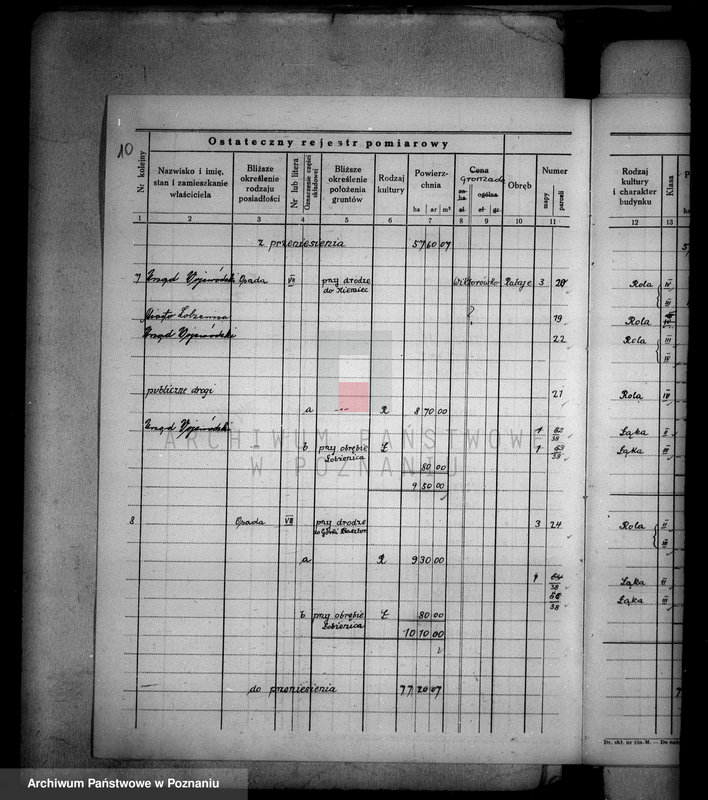 10
Ostateczny rejestr pomiarowy
Nr kolejny
Nazwisko i imię, stan i zamieszkanie właściciela
Bliższe określenie rodzaju posiadłości
Nr lub litera
Oznaczenie części składowej
Bliższe określenie położenia gruntów
Rodzaj kultury
Powierzchnia
ha ar m²
Cena
Gromada
za ha zł.
ogólna
zł gr.
Obręb
Numer
mapy
parceli
Rodzaj kultury i charakter budynku
Klasa
1 2 3 4 5 6 7 8 9 10 11 12 13
z przeniesienia 57 60 07
7 Urząd Wojewódzki Opada VII przy drodze do Niemiec Wiktorówko Rataje 3 20 Rola IV
III
Miasto Łobżenica ? 19 Rola
Urząd Wojewódzki 22 Rola III
IV
publiczne drogi 21 Rola IV
a -"- R 8 70 00
Urząd Wojewódzki 1 62/38 Łąka II
b przy obrębie Łobżenica Ł 80 00 1 63/38 Łąka III
9 50 00
8 Opada VII przy drodze 3 24 Rola II
III
a R 9 30 00
1 64/38 Łąka II
/38 Łąka III
b przy obrębie Łobżenica Ł 80 00
10 10 00
do przeniesienia 77 20 07
Dr. skł. nr 13a-M. — Do nab
ARCHIWUM PAŃSTWOWE
W POZNANIU
Archiwum Państwowe w Poznaniu